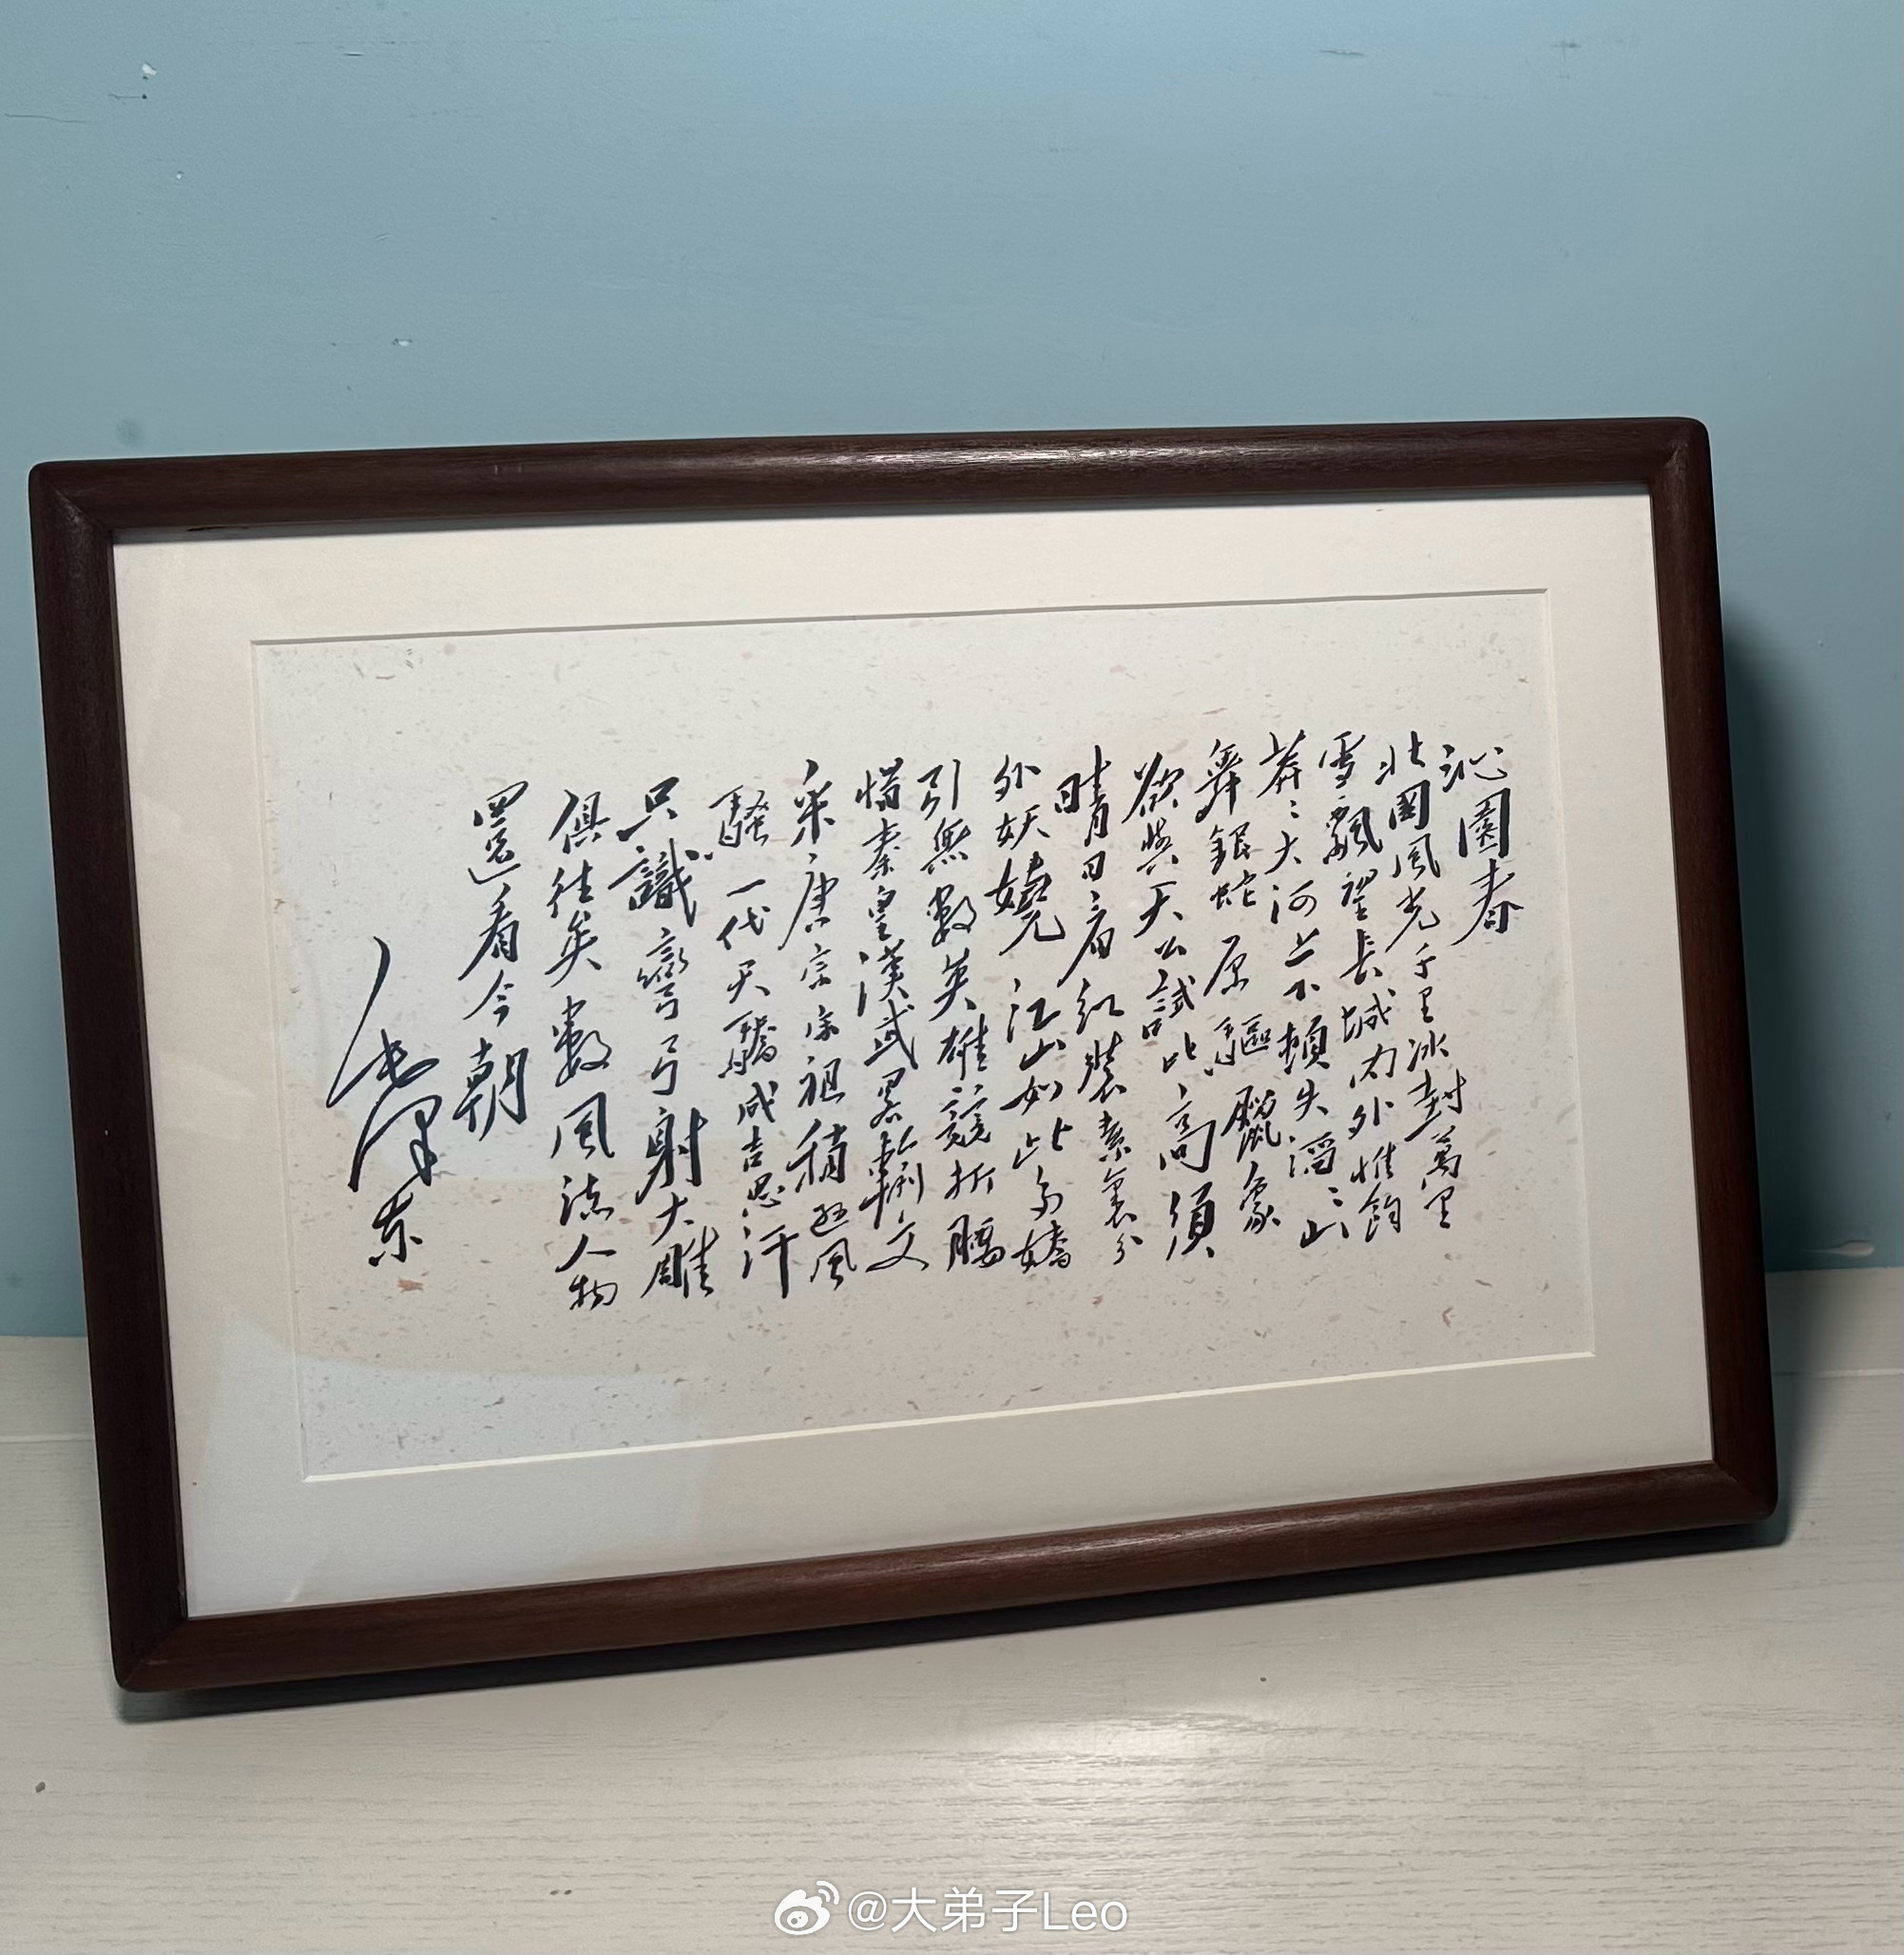 沁園春
北國風光千里冰封萬里
雪飄望長城内外惟餘
莽〻大河上下頓失滔〻山
舞銀蛇原驅臘象
欲與天公試比高須
晴日看紅裝素裹分
外妖嬈江山如此多嬌
引無數英雄競折腰
惜秦皇漢武畧輸文
采唐宗宋祖稍遜風
騷一代天驕成吉思汗
只識彎弓射大雕
俱往矣數風流人物
還看今朝
毛澤東
@大弟子Leo